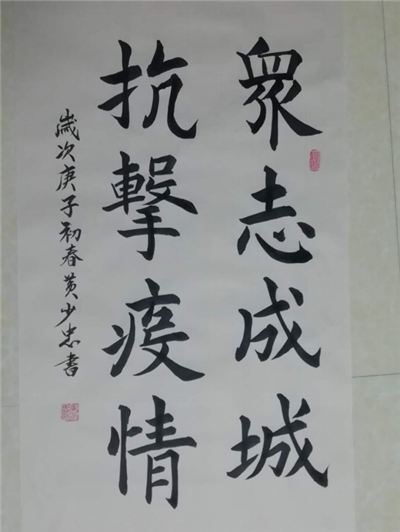 眾志成城
抗擊疫情
歲次庚子初春黄少忠書